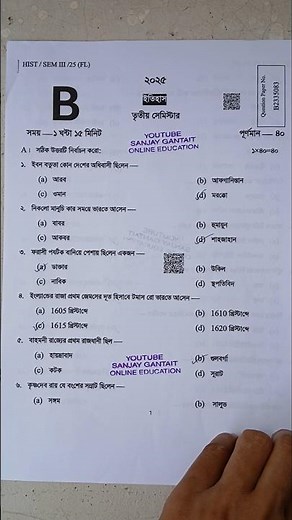 HIST / SEM III /25 (FL)
২০২৫
B
ইতিহাস
তৃতীয় সেমিস্টার
Question Paper No.
B2335083
সময় — ১ ঘন্টা ১৫ মিনিট
YOUTUBE
SANJAY GANTAIT
ONLINE EDUCATION
পূর্ণমান — ৪০
A : সঠিক উত্তরটি নির্বাচন করো:
১×৪০=৪০
১. ইবন বতুতা কোন দেশের অধিবাসী ছিলেন —
(a) আরব (b) আফগানিস্তান
(c) ওমান (d) মরক্কো
২. নিকলো মানুচি কার সময়ে ভারতে আসেন —
(a) বাবর (b) হুমায়ুন
(c) আকবর (d) শাহজাহান
৩. ফরাসী পর্যটক বানিয়ে পেশায় ছিলেন একজন —
(a) ডাক্তার (b) উকিল
(c) নাবিক (d) স্থপতিবিদ
৪. ইংল্যান্ডের রাজা প্রথম জেমসের দূত হিসাবে টমাস রো ভারতে আসেন —
(a) 1605 খ্রিস্টাব্দে (b) 1610 খ্রিস্টাব্দে
(c) 1615 খ্রিস্টাব্দে (d) 1620 খ্রিস্টাব্দে
৫. বাহমনী রাজ্যের প্রথম রাজধানী ছিল —
(a) হায়দ্রাবাদ (b) গুলবর্গা
YOUTUBE
SANJAY GANTAIT
ONLINE EDUCATION
(c) কটক (d) সুরাট
৬. কৃষ্ণদেব রায় যে বংশের সম্রাট ছিলেন —
(a) সঙ্গম (b) সালুভ
1